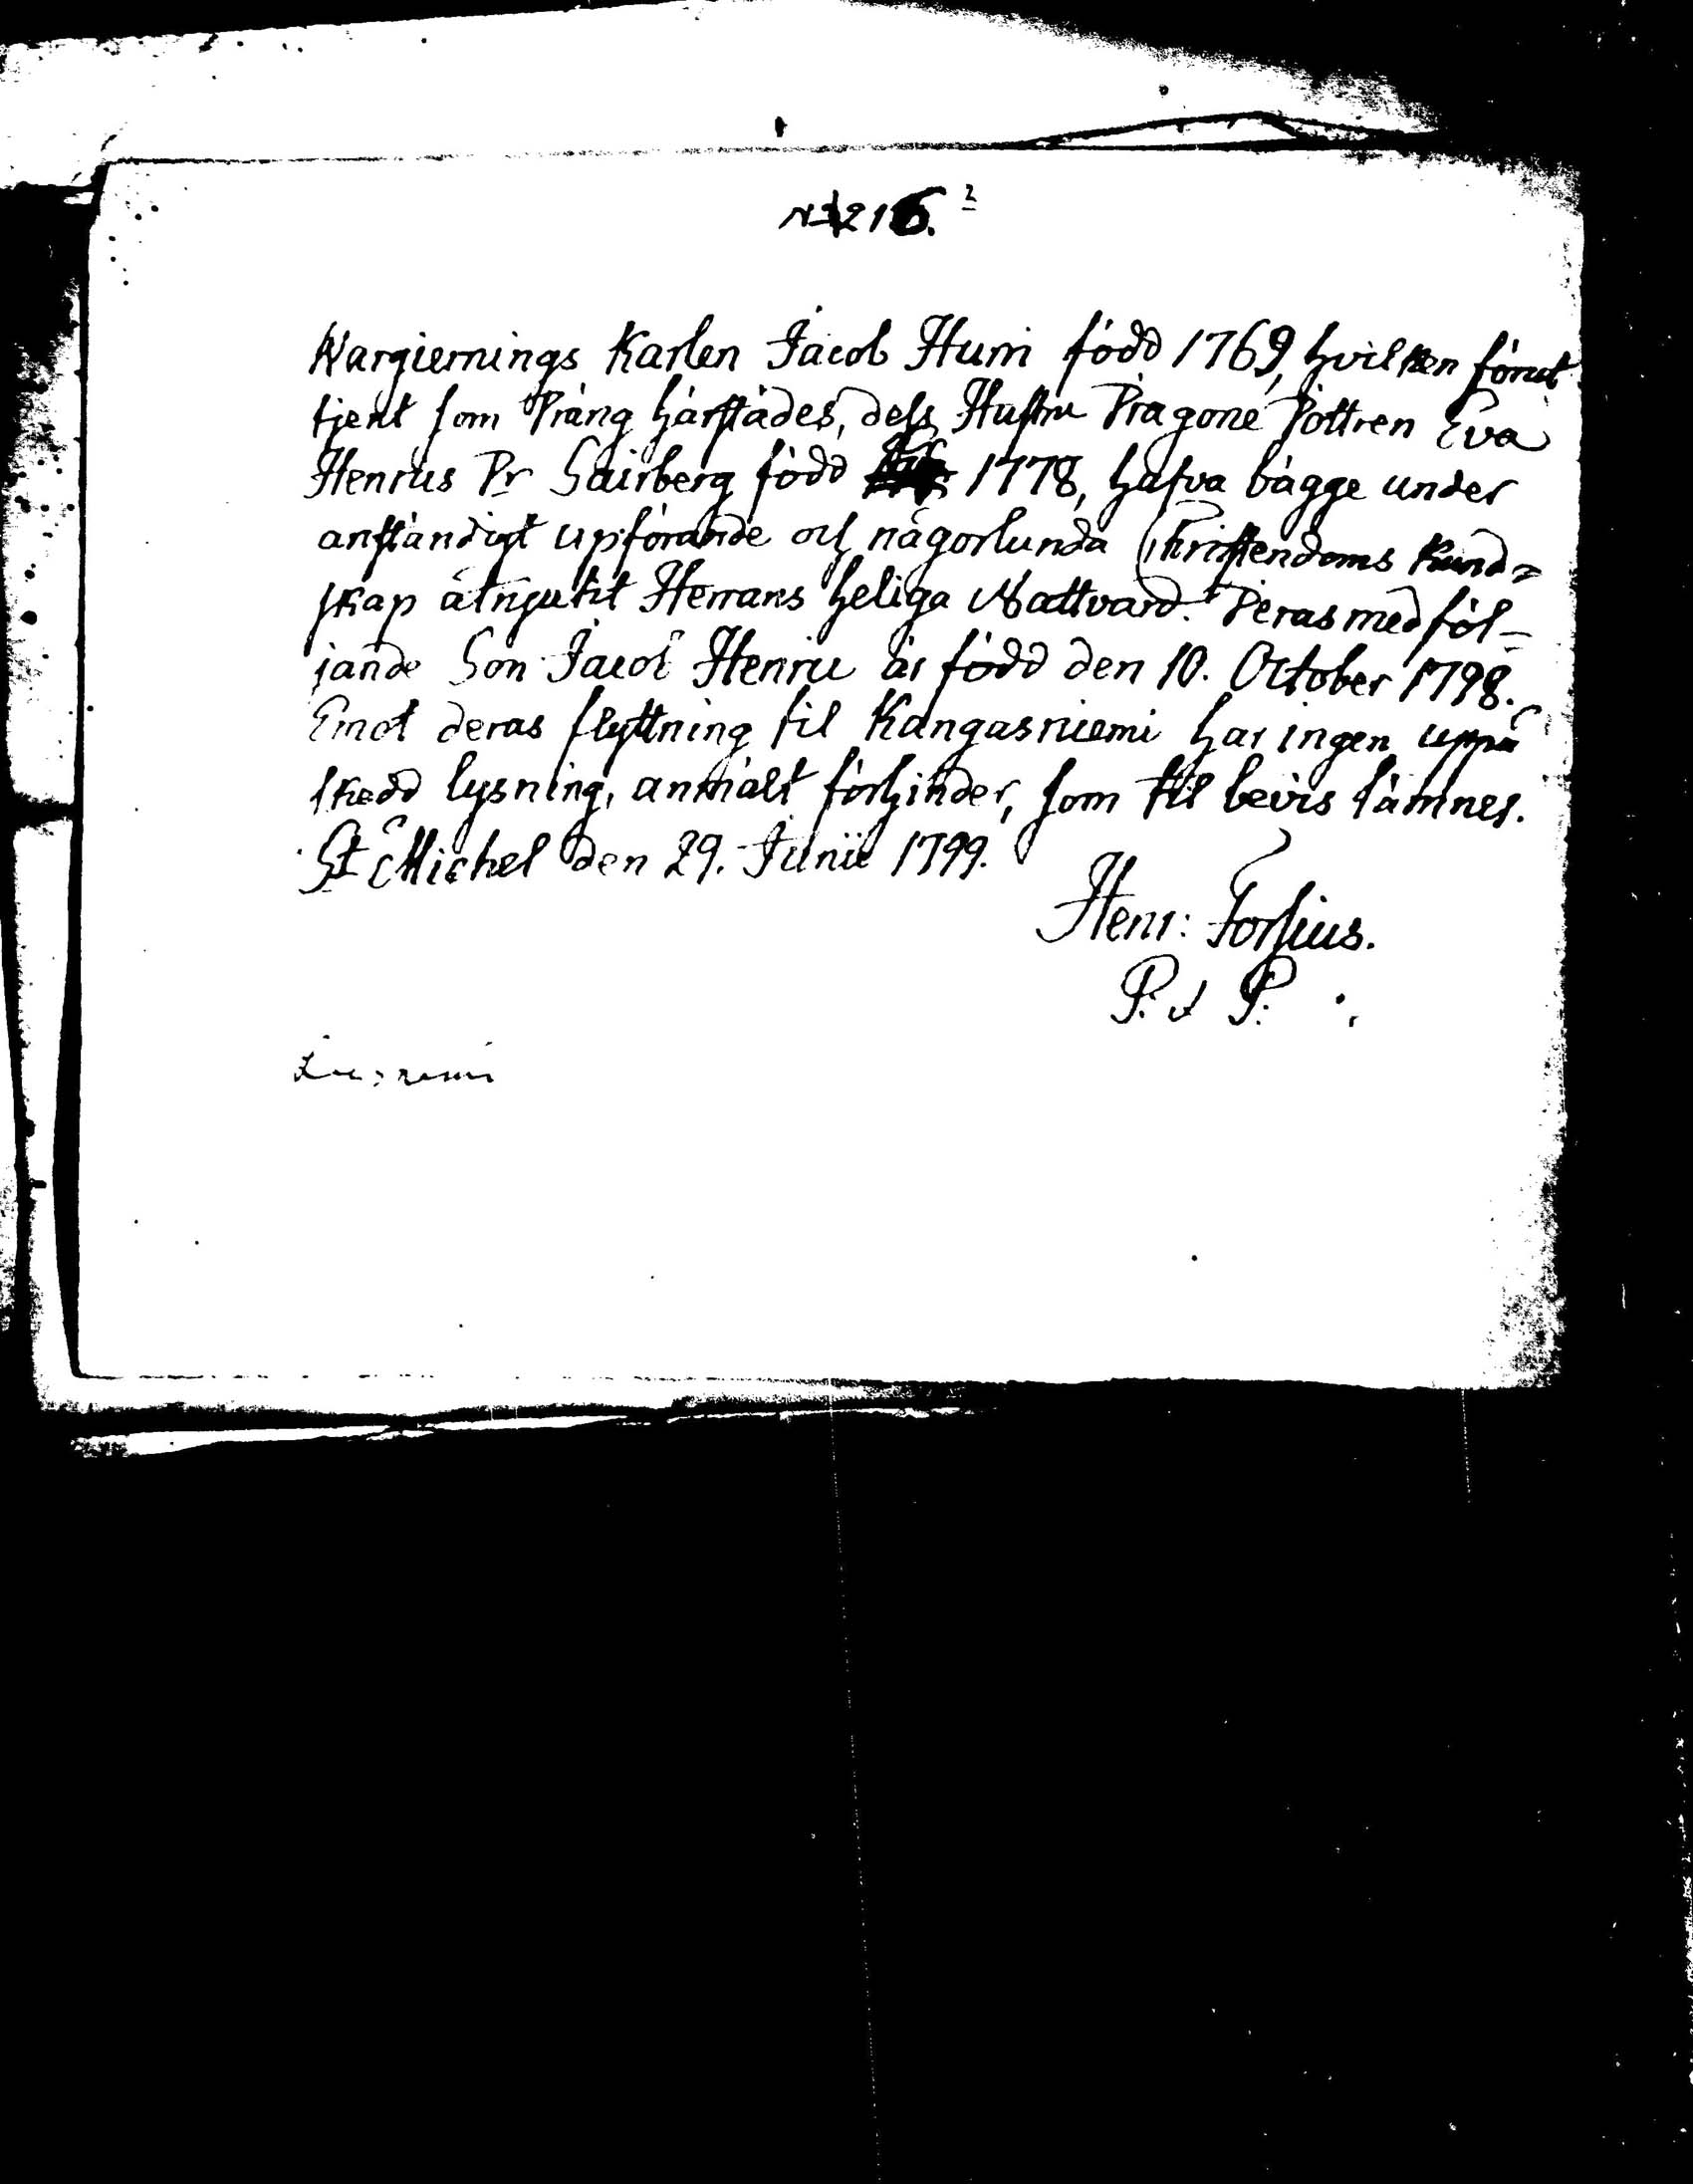 N 216. 2
Wargiernings Karlen Jacob Hurri född 1769, hvilken förut
tjent som Dräng härstädes, dess Hustru Dragone Dottren Eva
Henrics Dr Sairberg född 1778, hafva bägge under
anständigt upförande och någorlunda Christendoms Kund=
skap åtnjutit Herrans heliga Nattvard. Deras medföl-
jande Son Jacob Henric är född den 10. October 1798.
Emot deras flyttning til Kangasniemi har ingen, uppå
skedd lysning, anmält förhinder, som til bevis lämnes.
St Michel den 29. Junii 1799.
Henr: Forsius.
P. & P.